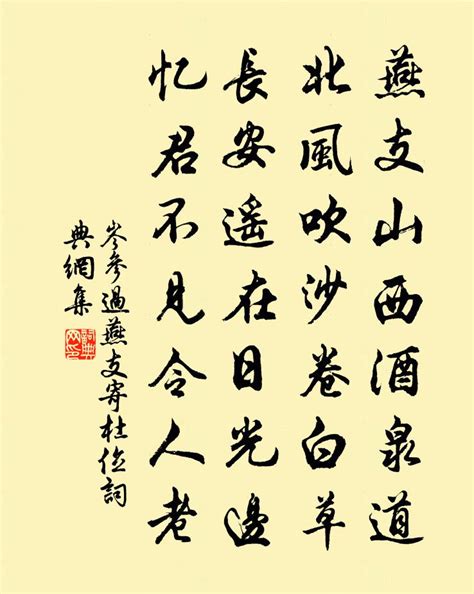 燕支山西酒泉道
北風吹沙卷白草
長安遥在日光邊
忆君不見令人老
岑參過燕支寄杜位詞
典網集